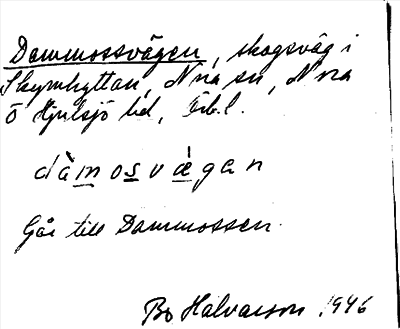 Dammossvägen, skogsväg i
Skymhyttan, Nora sn, Nora
o Hjulsjö hd, Örb. l.
dàmosvægan
Går till Dammossen.
Bo Halvarson 1946